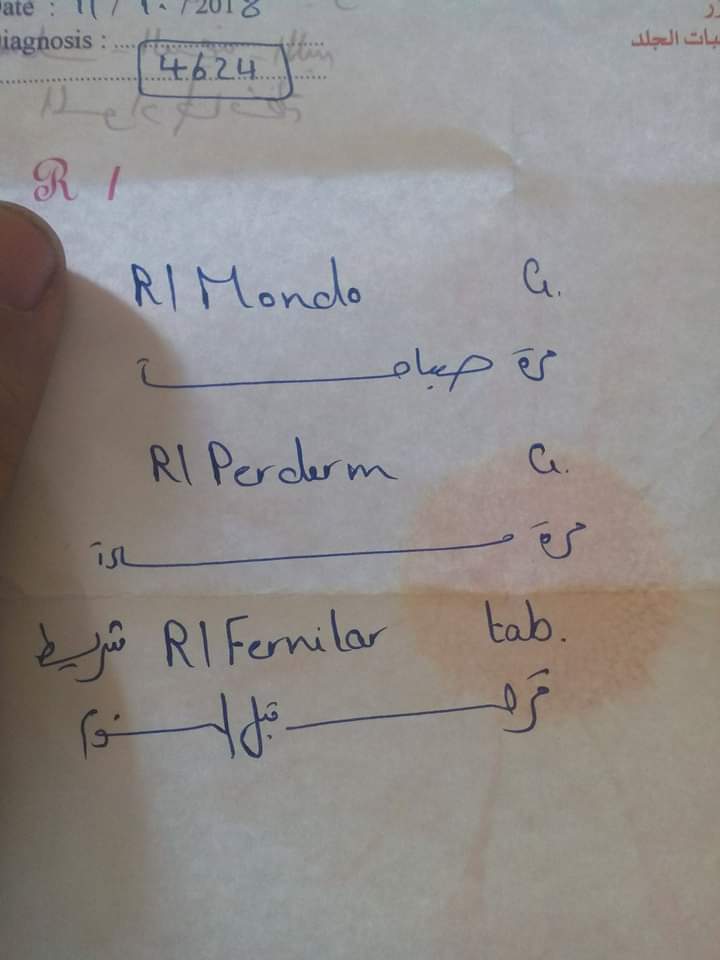 Date : 11 / ١٠ / 2018
Diagnosis :
بات الجلد
4624
R /
R/ Mondo G.
مرة صباحاً
R/ Perderm G.
مرة مساءً
R/ Fernilar tab. شريط
قرص قبل النوم